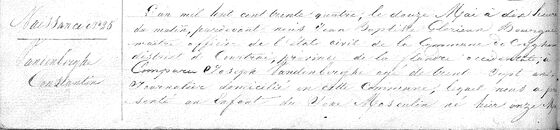 Naissance n° 28
Vandenberghe
Constantin
L'an mil huit cent trente quatre, le douze Mai à dix heures
du matin, pardevant nous Jean Bapt. De Clercq Bourgue
maitre officier de l'état civil de la Commune de
district de Courtrai, province de la Flandre occidentale, a
Comparu Joseph Vandenberghe agé de trent sept ans
Journalier domicilié en cette Commune, lequel nous a pré
senté un enfant du sexe Masculin né hier onze Mai